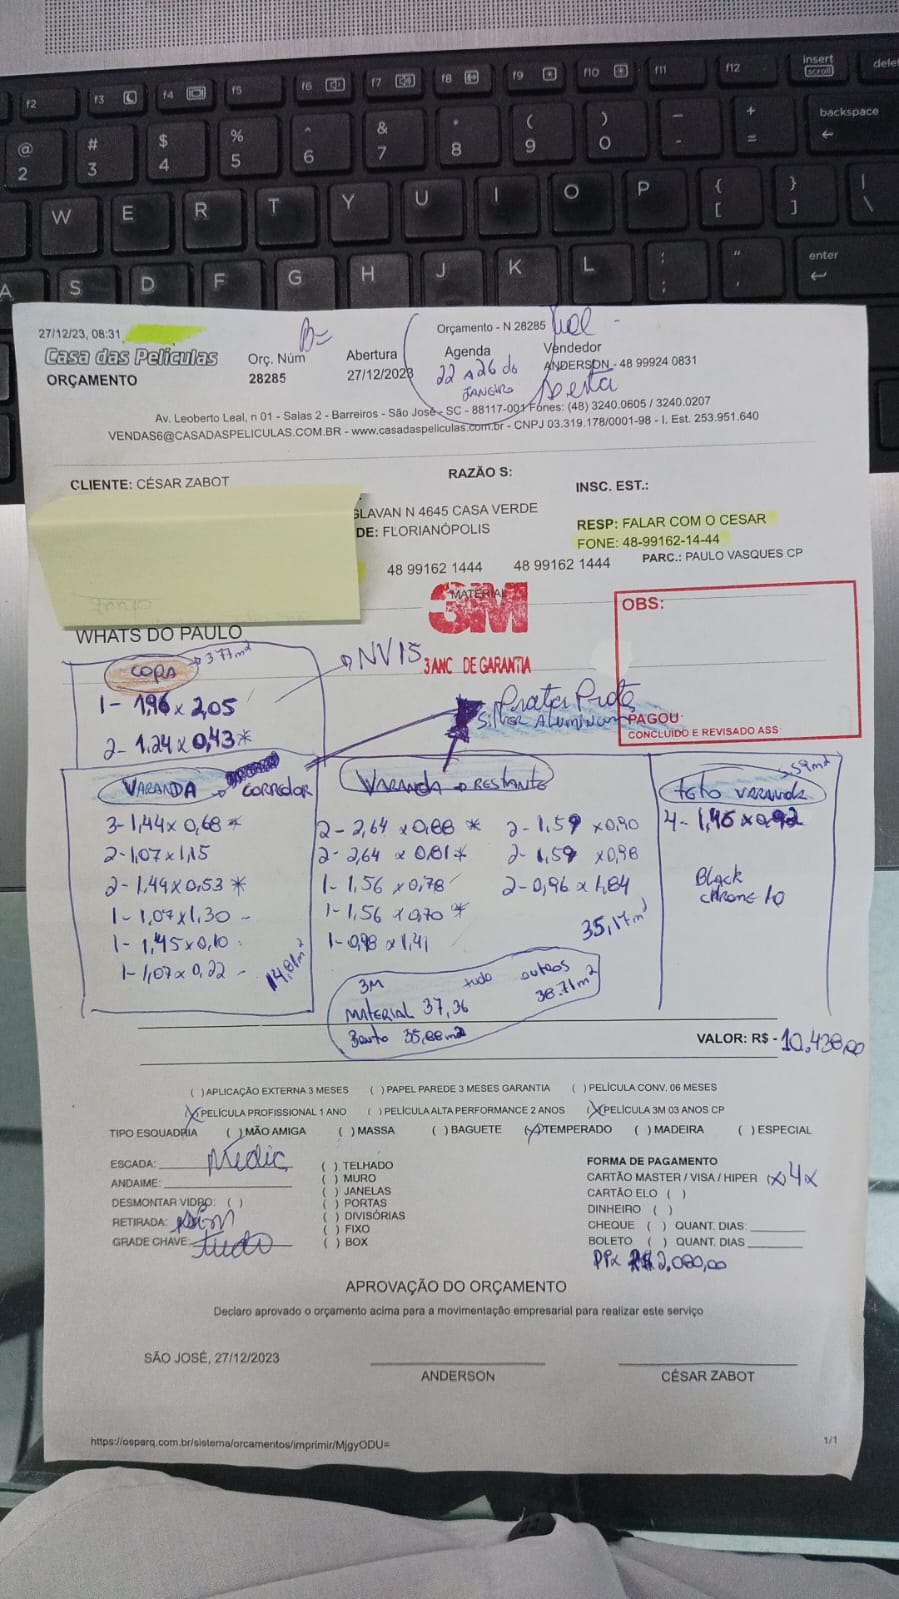 f2 f3 f4 f5 f6 f7 f8 f9 f10 f11 f12 insert scroll delet
@ # $ % ^ & * ( ) - + backspace
2 3 4 5 6 7 8 9 0 - =
W E R T Y U I O P { } | [ ] \
A S D F G H J K L : ; " ' enter
27/12/23, 08:31
Orçamento - N 28285
Casa das Películas
ORÇAMENTO
Orç. Núm
28285
Abertura
27/12/2023
Agenda
22 A 26 de
JANEIRO
Vendedor
ANDERSON - 48 99924 0831
Sexta
Av. Leoberto Leal, n 01 - Salas 2 - Barreiros - São José - SC - 88117-001 Fones: (48) 3240.0605 / 3240.0207
VENDAS6@CASADASPELICULAS.COM.BR - www.casadaspeliculas.com.br - CNPJ 03.319.178/0001-98 - I. Est. 253.951.640
CLIENTE: CÉSAR ZABOT
RAZÃO S:
INSC. EST.:
GLAVAN N 4645 CASA VERDE
DE: FLORIANÓPOLIS
RESP: FALAR COM O CESAR
FONE: 48-99162-14-44
48 99162 1444 48 99162 1444
PARC.: PAULO VASQUES CP
MATERIAL
3M
3 ANC DE GARANTIA
OBS:
PAGOU:
CONCLUIDO E REVISADO ASS:
WHATS DO PAULO
COPA 3.77m²
NV15
1- 1,96 x 2,05
2- 1.24 x 0,43 *
Prata
Silver Aluminium
VARANDA → CORREDOR
3- 1,44 x 0,68 *
2- 1,07 x 1,15
2- 1,44 x 0,53 *
1- 1,07 x 1,30 -
1- 1,45 x 0,10
1- 1,07 x 0,22 -
14,81m²
Varanda → RESTANTE
2- 2,64 x 0,88 * 2- 1,59 x 0,90
2- 2,64 x 0,81 * 2- 1,59 x 0,98
1- 1,56 x 0,78 2- 0,96 x 1,84
1- 1,56 x 0,70 *
1- 0,98 x 1,41
35,17m²
teto VARANDA 5.59m²
4- 1,45 x 0,92
Black
chrome 10
3M tudo outros
MATERIAL 37,36 38.71m²
35,88m²
VALOR: R$ - 10.438,00
( ) APLICAÇÃO EXTERNA 3 MESES ( ) PAPEL PAREDE 3 MESES GARANTIA ( ) PELÍCULA CONV. 06 MESES
(X) PELÍCULA PROFISSIONAL 1 ANO ( ) PELÍCULA ALTA PERFORMANCE 2 ANOS (X) PELÍCULA 3M 03 ANOS CP
TIPO ESQUADRIA ( ) MÃO AMIGA ( ) MASSA ( ) BAGUETE (X) TEMPERADO ( ) MADEIRA ( ) ESPECIAL
ESCADA: Media
ANDAIME:
DESMONTAR VIDRO: ( )
RETIRADA: sim
GRADE CHAVE: tudo
( ) TELHADO
( ) MURO
( ) JANELAS
( ) PORTAS
( ) DIVISÓRIAS
( ) FIXO
( ) BOX
FORMA DE PAGAMENTO
CARTÃO MASTER / VISA / HIPER (x) 4x
CARTÃO ELO ( )
DINHEIRO ( )
CHEQUE ( ) QUANT. DIAS:
BOLETO ( ) QUANT. DIAS
R$ 2.080,00
APROVAÇÃO DO ORÇAMENTO
Declaro aprovado o orçamento acima para a movimentação empresarial para realizar este serviço
SÃO JOSÉ, 27/12/2023
ANDERSON
CÉSAR ZABOT
https://osparq.com.br/sistema/orcamentos/imprimir/MjgyODU=
1/1